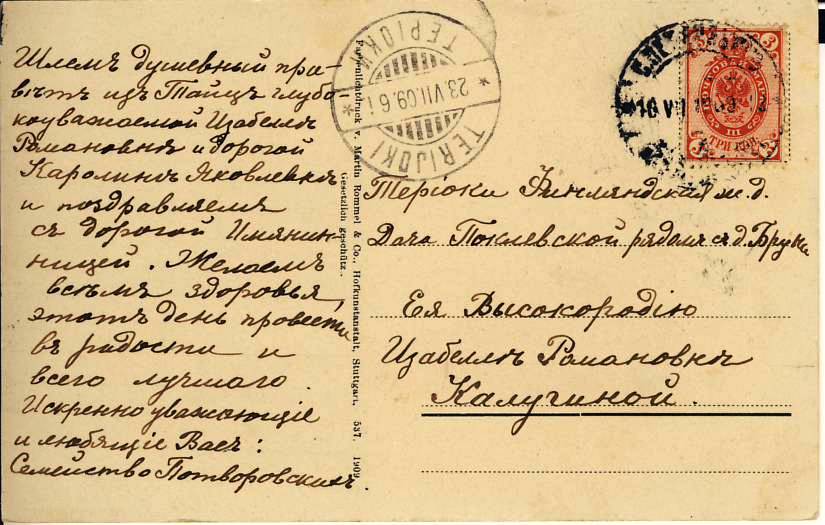 Шлемъ душевный при-
вѣтъ изъ Тайцъ глубо-
коуважаемой Изабеллѣ
Романовнѣ и дорогой
Каролинѣ Яковлевнѣ
и поздравляемъ
съ дорогой Имянин-
ницей. Желаемъ
всѣмъ здоровья,
этотъ день провести
въ радости и
всего лучшаго.
Искренно уважающіе
и любящіе Васъ:
Семейство Потворовскихъ.
Farbenlichtdruck v. Martin Rommel & Co., Hofkunstanstalt, Stuttgart. 537. 1909.
Gesetzlich geschützt.
ТЕРІОКИ
23.VII.09.6 i
TERIJOKI
10 VII 1909
3 3
ПОЧТОВАЯ МАРКА
3 ТРИ КОП.
Теріоки Финляндская ж. д.
Дача Поклевской рядомъ съ д.
Ея Высокородію
Изабеллѣ Романовнѣ
Калугиной.